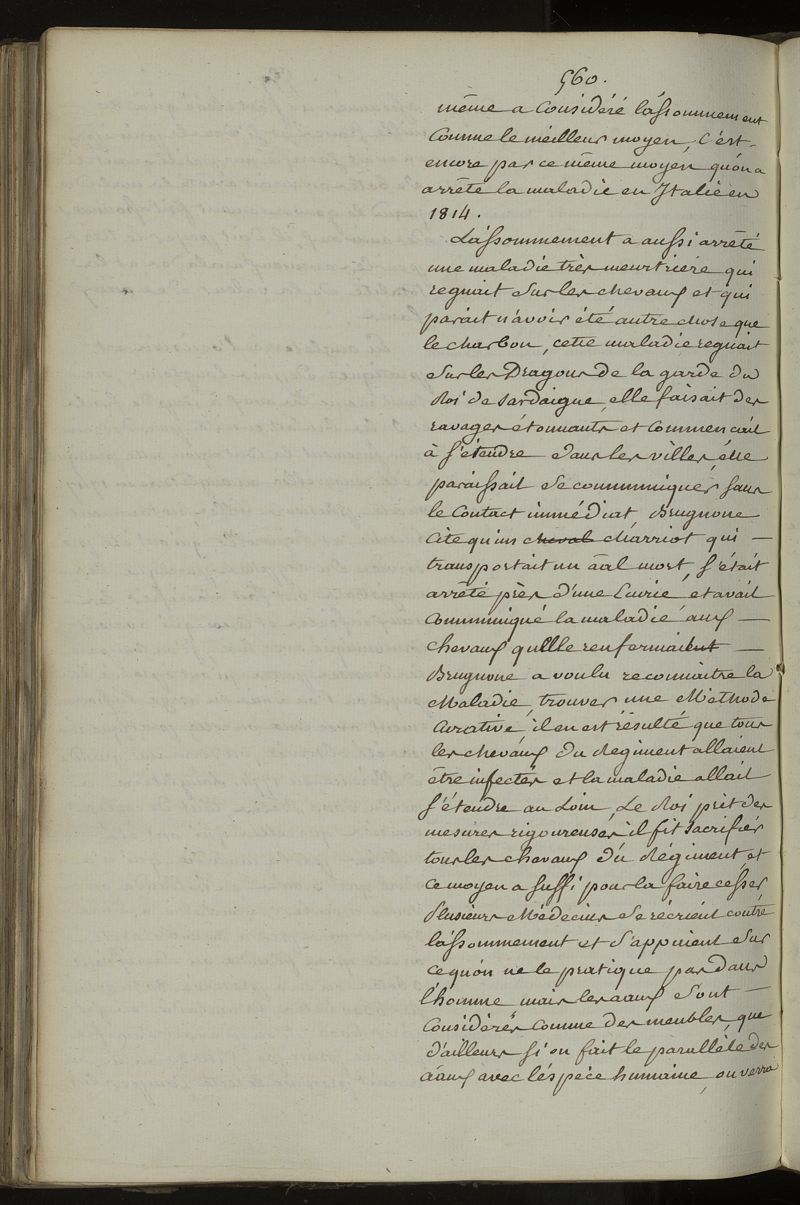 560.
même a Considéré l'assommement
Comme le meilleur moyen, C'est
encore par ce même moyen qu'on a
arrêté la maladie en Italie en
1814.
L'assommement a aussi arrêté
une maladie très meurtrière qui
regnait sur les chevaux et qui
parait n'avoir été autre chose que
le charbon, cette maladie regnait
sur les Dragons de la garde du
Roi de Sardaigne, elle faisait des
ravages étonnants et Commencait
à s'étendre dans les villes, elle
paraissait se communiquer sans
le Contact immédiat, Brugnone
Cite qu'un cheval charriot qui —
transportait un aal mort, s'était
arrêté près d'une Ecurie, et avait
Communiqué la maladie aux —
chevaux qu'elle renfermaient —
Brugnone a voulu reconnaitre la
Maladie, trouver une Méthode
Curative, il en est résulté que tous
les chevaux du Regiment allaient
être infectés et la maladie allait
s'étendre au Loin, Le Roi prit des
mesures rigoureuses il fit sacrifier
tous les chevaux du Régiment, et
ce moyen a suffi pour la faire cesser
Plusieurs Médecins se récrient contre
l'assommement et s'appuient sur
ce qu'on ne le pratique pas dans
l'homme mais les aaux sont —
Considérés comme des meubles, que
d'ailleurs si on fait le parallèle des
aaux avec l'éspèce humaine, on verra